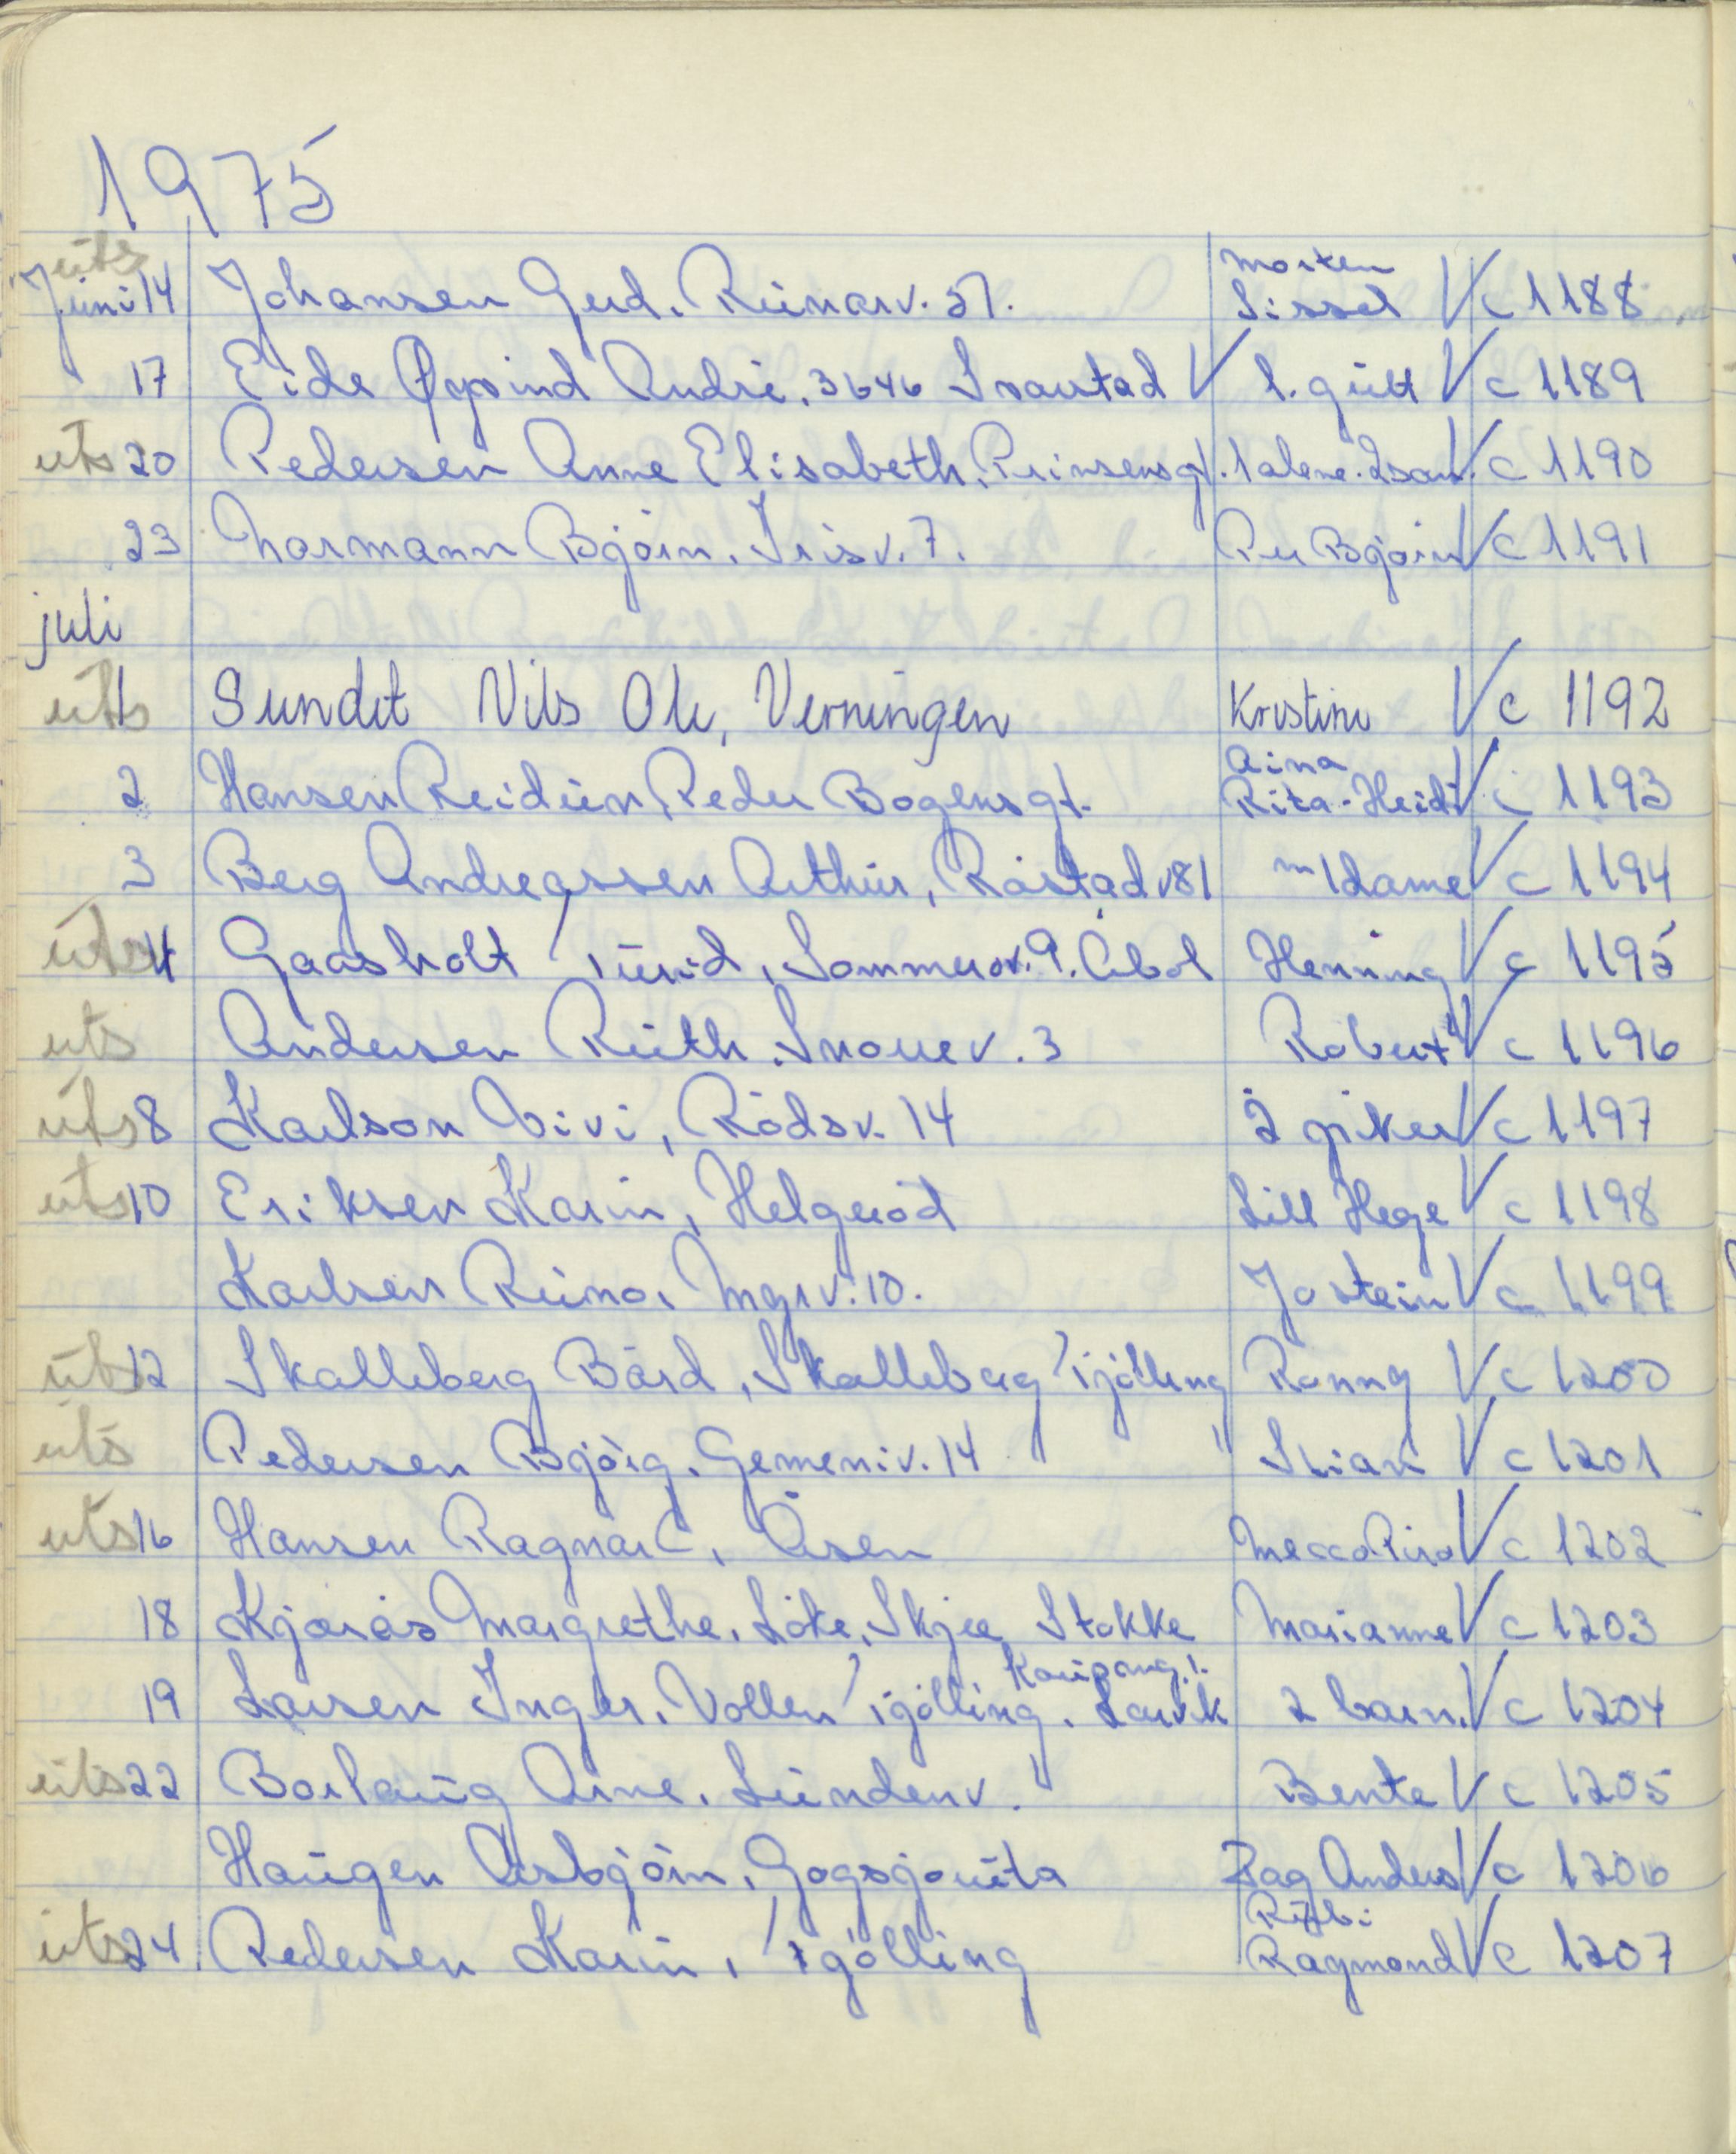 1975
uts
Juni 14 Johansen Gerd. Runarv. 57. Morten Sissel V c 1188
17 Eide Øyvind André. 3646 Svarstad V 1. gutt V c 1189
uts 20 Pedersen Anne Elisabeth. Prinsensgt. 1 alene. 2 sam. V c 1190
23 Narmann Bjørn. Irisv. 7. Per Bjørn V c 1191
juli
uts 1 Sundet Nils Ole, Verningen Kristine V c 1192
2 Hansen Reidun, Peder Bogensgt. Aina Rita-Heidi V c 1193
3 Berg Andreassen Arthur, Råstadv 81 m 1 dame V c 1194
uts 4 Gaasholt Turid, Sommerov. 9. Åbol Henning V c 1195
uts Andersen Ruth. Snorrev. 3 Robert V c 1196
uts 8 Karlson Vivi, Rødsv. 14 2 piker V c 1197
uts 10 Eriksen Karin, Helgerød Lill Hege V c 1198
Karlsen Runar, Myrv. 10. Jostein V c 1199
uts 12 Skalleberg Bård, Skalleberg Tjølling Ronny V c 1200
uts Pedersen Bjørg. Gemeniv. 14 Stian V c 1201
uts 16 Hansen Ragnar C, Åsen V c 1202
18 Kjærås Margrethe. Løke, Skjee Stokke Marianne V c 1203
19 Larsen Inger. Vollen Tjølling. Kaupang. Larvik 2 barn. V c 1204
uts 22 Borlaug Arne. Lundenv. Bente V c 1205
Haugen Asbjørn, Gogsjøruta Dag Anders V c 1206
uts 24 Pedersen Karin, Tjølling Ragmond V c 1207